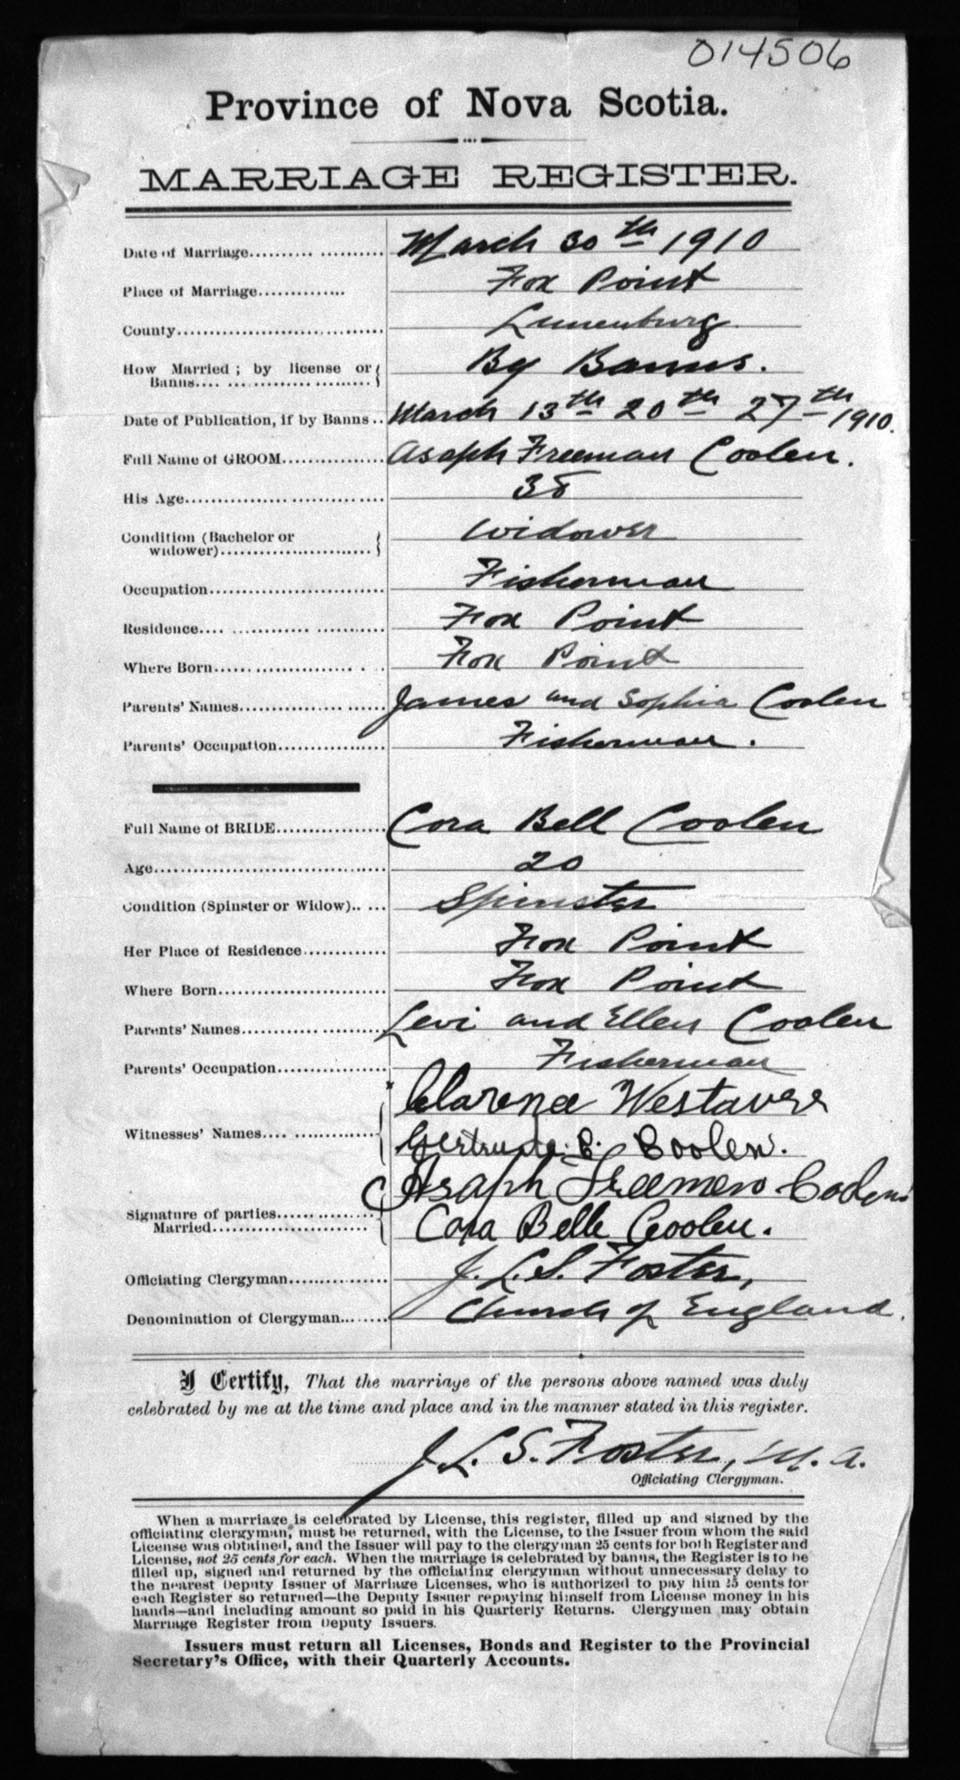 014506
Province of Nova Scotia.
MARRIAGE REGISTER.
Date of Marriage March 30th 1910
Place of Marriage Fox Point
County Lunenburg
How Married ; by license or
Banns By Banns.
Date of Publication, if by Banns March 13th 20th 27th 1910.
Full Name of GROOM Asaph Freeman Coolen.
His Age 38
Condition (Bachelor or
widower) Widower
Occupation Fisherman
Residence Fox Point
Where Born Fox Point
Parents' Names James and Sophia Coolen
Parents' Occupation Fisherman.
Full Name of BRIDE Cora Bell Coolen
Age 20
Condition (Spinster or Widow) Spinster
Her Place of Residence Fox Point
Where Born Fox Point
Parents' Names Levi and Ellen Coolen
Parents' Occupation Fisherman
Clarence Westaver
Witnesses' Names Gertrude B. Coolen.
Asaph Freeman Coolen
Signature of parties
Married Cora Belle Coolen.
Officiating Clergyman J. L. S. Foster,
Denomination of Clergyman Church of England.
I Certify, That the marriage of the persons above named was duly
celebrated by me at the time and place and in the manner stated in this register.
J. L. S. Foster, M. A.
Officiating Clergyman.
When a marriage is celebrated by License, this register, filled up and signed by the
officiating clergyman, must be returned, with the License, to the Issuer from whom the said
License was obtained, and the Issuer will pay to the clergyman 25 cents for both Register and
License, not 25 cents for each. When the marriage is celebrated by banns, the Register is to be
filled up, signed and returned by the officiating clergyman without unnecessary delay to
the nearest Deputy Issuer of Marriage Licenses, who is authorized to pay him 25 cents for
each Register so returned—the Deputy Issuer repaying himself from License money in his
hands—and including amount so paid in his Quarterly Returns. Clergymen may obtain
Marriage Register from Deputy Issuers.
Issuers must return all Licenses, Bonds and Register to the Provincial
Secretary's Office, with their Quarterly Accounts.